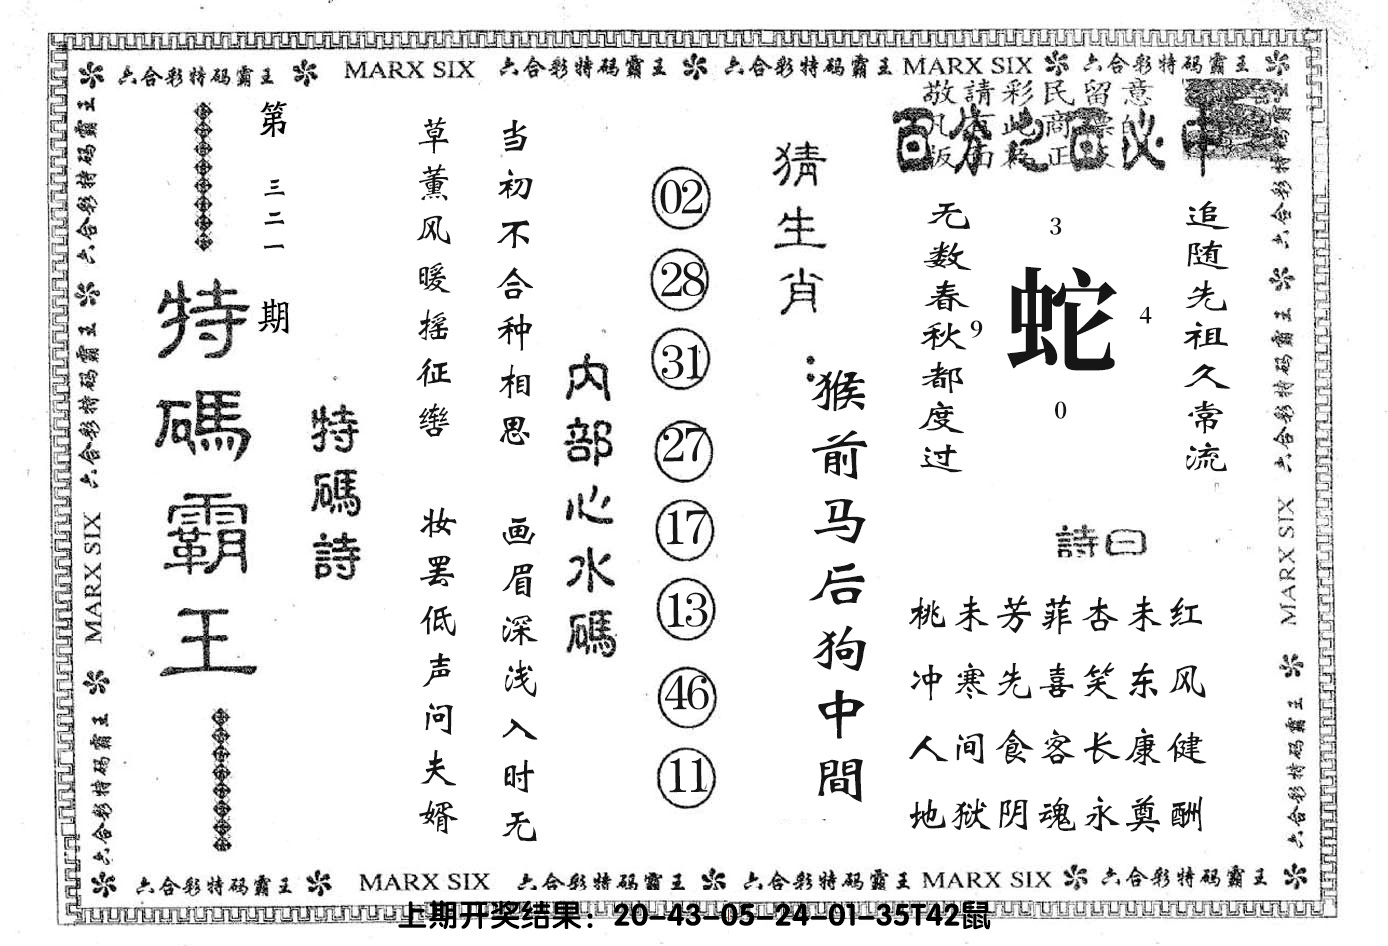 六合彩特码霸王 MARX SIX 六合彩特码霸王 六合彩特码霸王 MARX SIX 六合彩特码霸王
敬請彩民留意
百分之百必中
追随先祖久常流
3
9
蛇
4
0
无数春秋都度过
詩曰
桃未芳菲杏未红
冲寒先喜笑东风
人间食客长康健
地狱阴魂永奠酬
猜生肖：
猴前马后狗中間
02
28
31
27
17
13
46
11
内部心水碼
当初不合种相思
草薰风暖摇征辔
画眉深浅入时无
妆罢低声问夫婿
特碼詩
第三二一期
特碼霸王
六合彩特码霸王 六合彩特码霸王 MARX SIX 六合彩特码霸王
六合彩特码霸王 六合彩特码霸王 MARX SIX 六合彩特码霸王
六合彩特码霸王 MARX SIX 六合彩特码霸王 六合彩特码霸王 MARX SIX 六合彩特码霸王
上期开奖结果：20-43-05-24-01-35T42鼠